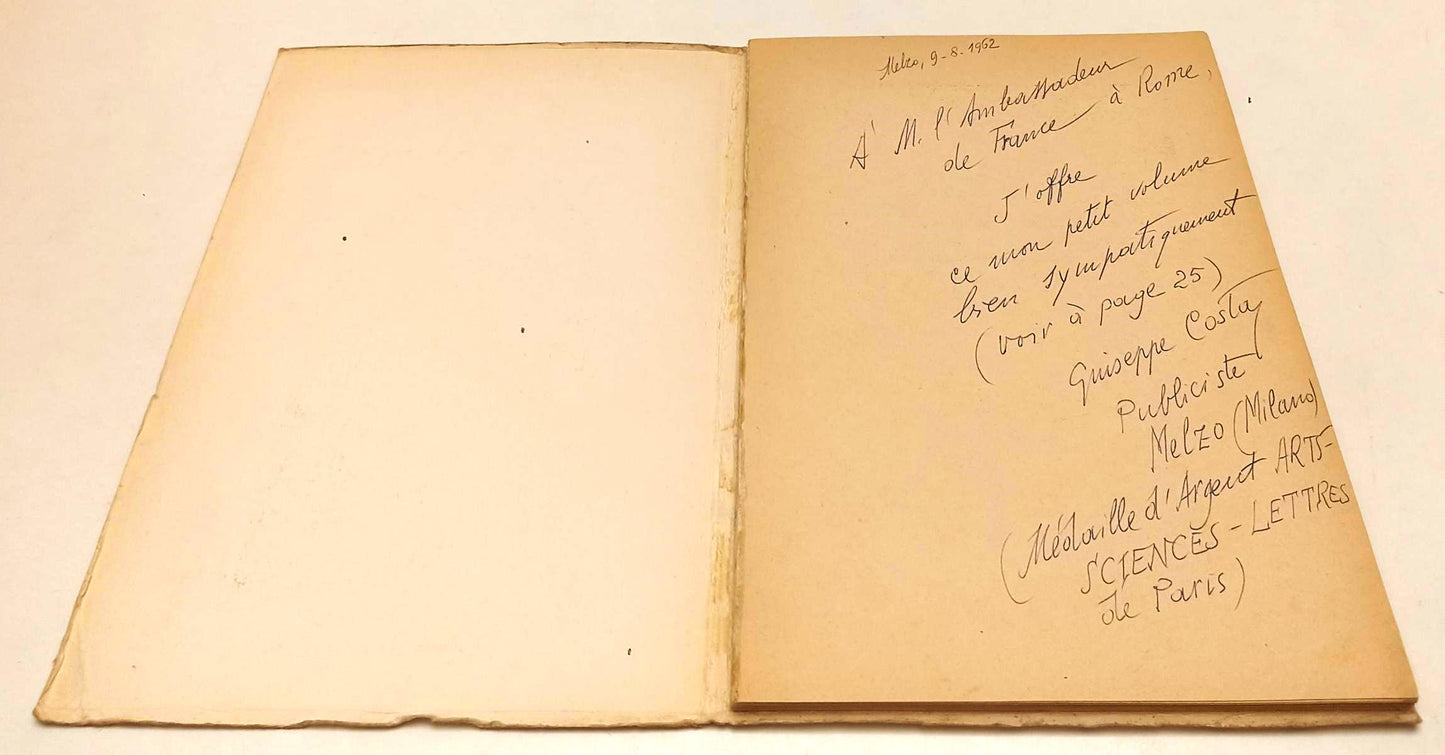 Melzo, 9-8-1962
A' M. l'Ambassadeur
de France à Rome,
J'offre
ce mon petit volume
bien sympatiquement
(voir à page 25)
Guiseppe Costa
Publiciste
Melzo (Milano)
(Médaille d'Argent ARTS-
SCIENCES-LETTRES
de Paris)